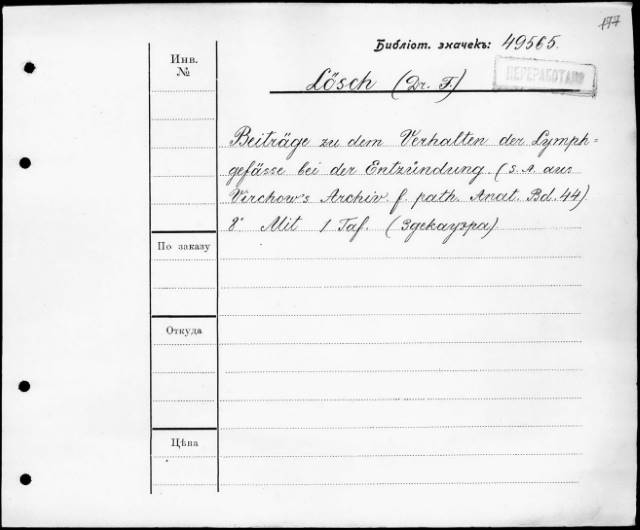 177
Библіот. значекъ: 49565.
ПЕРЕРАБОТАНО
Инв.
№
Lösch (Dr. F.)
Beiträge zu dem Verhalten der Lymph=
gefässe bei der Entzündung. (S. A. aus
Virchow's Archiv. f. path. Anat. Bd. 44)
8° Mit 1 Taf. (Здекауэра)
По заказу
Откуда
Цѣна